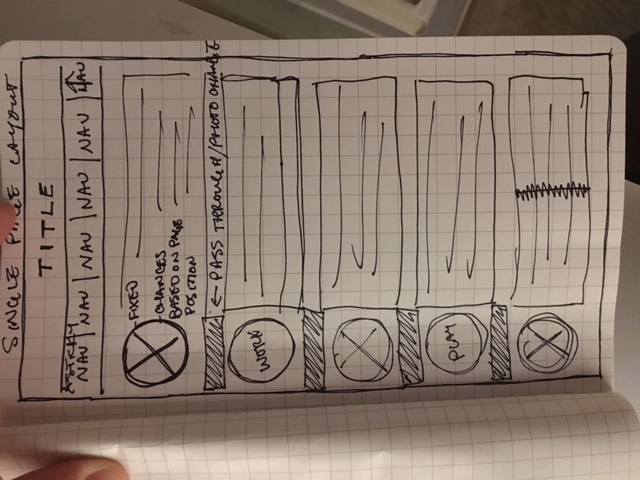 SINGLE PAGE LAYOUT
TITLE
*STICKY
NAV NAV NAV NAV NAV NAV
FIXED
CHANGES
BASED ON PAGE
POSITION
← PASS THROUGH/PHOTO CHANGE
WORK
PLAY